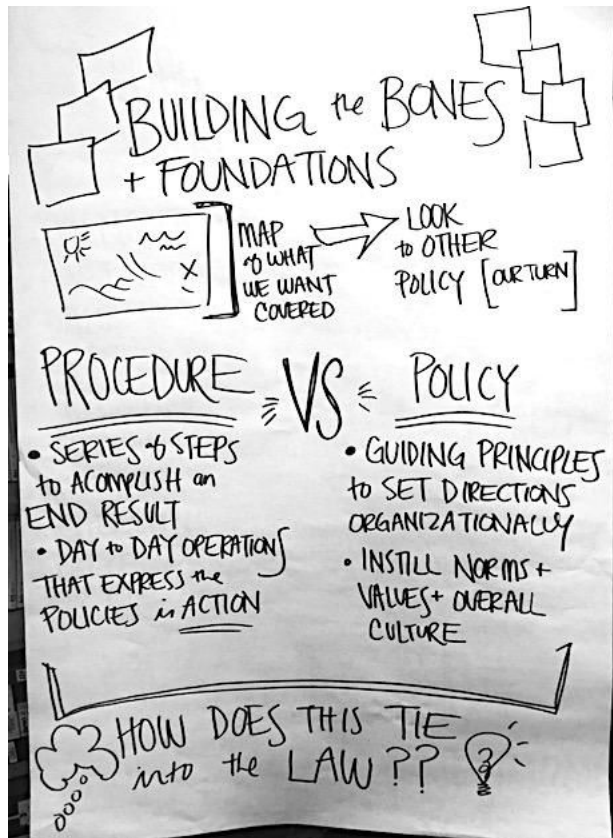 BUILDING the BONES
+ FOUNDATIONS
MAP
of WHAT
WE WANT
COVERED
LOOK
to OTHER
POLICY [OUR TURN]
X
PROCEDURE
VS
POLICY
• SERIES of STEPS
to ACOMPLISH an
END RESULT
• DAY to DAY OPERATIONS
THAT EXPRESS the
POLICIES in ACTION
• GUIDING PRINCIPLES
to SET DIRECTIONS
ORGANIZATIONALLY
• INSTILL NORMS +
VALUES + OVERALL
CULTURE
HOW DOES THIS TIE
into the LAW??
?